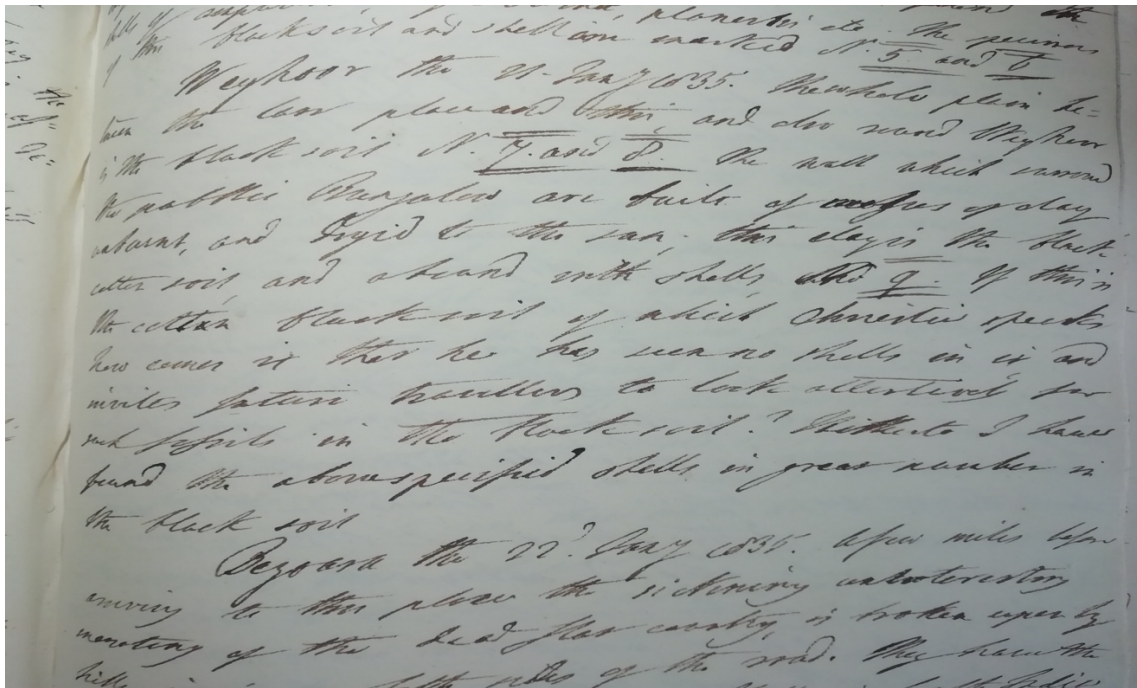 shells of
of this black soil and shell are marked N. 5 and 6
Weyhoor the 21. Jany 1835. The whole plain be=
tween the last place and this, and also round Weyhoor
is the black soil N. 7. and 8. The wall which surround
the public Bungalow are built of masses of clay
unburnt, and dryid to the sun; this clay is the black
cotton soil, and abound with shells, 9. If this is
the cotton black soil of which Christie speaks
how comes it that he has seen no shells in it and
invites future travellers to look attentively for
such fossils in the black soil? Hitherto I have
found the abovespecified shells in great number in
the black soil
Bezoara the 22d. Jany 1835. A few miles before
arriving to this place the sickining uninteresting
monotony of the dead flat country, is broken upon by
hills sides of the road. They have the